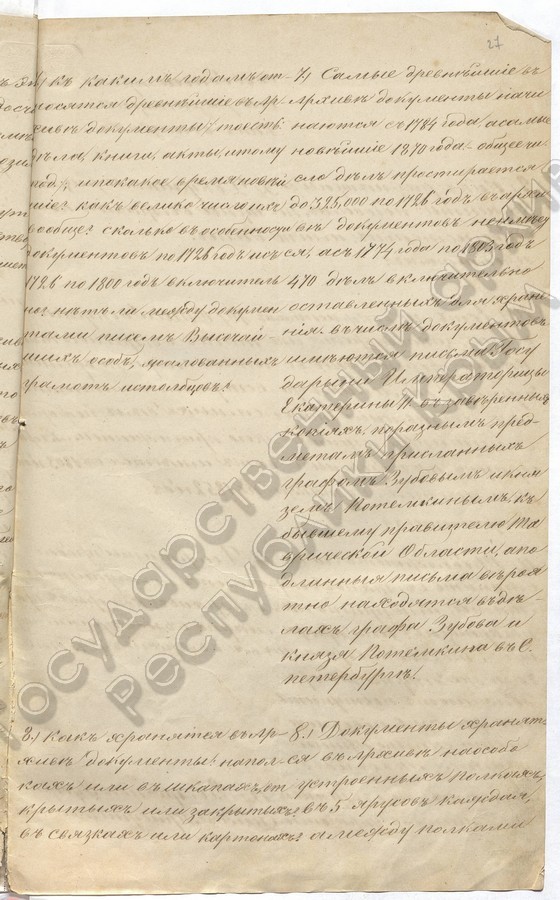 27
къ какимъ годамъ от-
носятся древнѣйшіе въ Ар
хивѣ документы, тоесть:
дѣла, книги, акты, и тому
под., и по какое время новѣй
шіе? какъ велико число ихъ
вообще? сколько въ особенности
документовъ по 1726 годъ и съ
1726 по 1800 годъ включитель
но? нѣтъ ли между докумен
тами писемъ Высочай-
шихъ особъ, жалованныхъ
грамотъ и столбцовъ?
7) Самые древнѣйшіе въ
Архивѣ документы начи
наются съ 1784 года, а самые
новѣйшіе 1870 года – общее чи
сло дѣлъ простирается
до 325,000 по 1726 годъ въ архи
вѣ документовъ неимеет
ся, а съ 1774 года по 1803 годъ
470 дѣлъ включительно
оставленныхъ для хране
нія. въ числѣ документовъ
имѣются письма Госу
дарыни Императорицы
Екатерины II въ завѣренныхъ
копіяхъ, поразнымъ пред-
метамъ присланныхъ
графомъ Зубовымъ и кня
земъ Потемкинымъ, къ
бывшему правителю Та
врической Области, а по
длинныя письма вѣроя
тно находятся въ дѣ-
лахъ графа Зубова и
князя Потемкина въ С.
петербургѣ.
8.) какъ хранятся въ Ар-
хивѣ документы? на пол-
кахъ или въ шкапахъ, от
крытыхъ или закрытыхъ?
въ связкахъ или картонахъ?
8.) Документы хранят-
ся въ Архивѣ наособо
устроенныхъ полкахъ,
въ 5 ярусовъ каждая,
а между полками
Государственный архив
Республики Крым